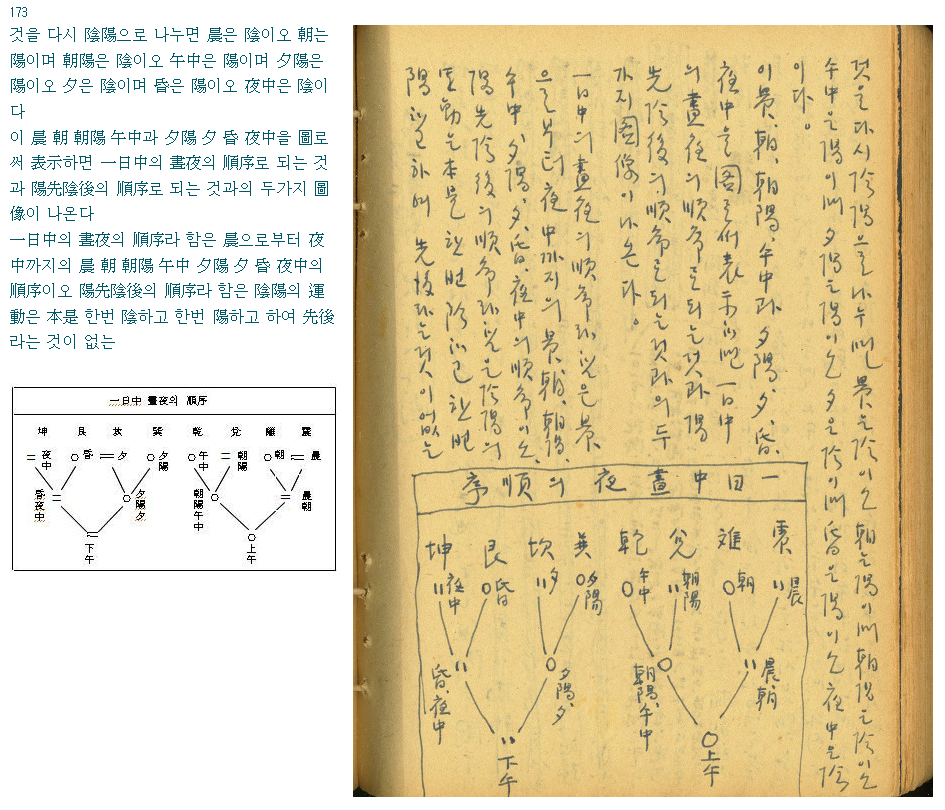 173
것을 다시 陰陽으로 나누면 晨은 陰이오 朝는
陽이며 朝陽은 陰이오 午中은 陽이며 夕陽은
陽이오 夕은 陰이며 昏은 陽이오 夜中은 陰이
다
이 晨 朝 朝陽 午中과 夕陽 夕 昏 夜中을 圖로
써 表示하면 一日中의 晝夜의 順序로 되는 것
과 陽先陰後의 順序로 되는 것과의 두가지 圖
像이 나온다
一日中의 晝夜의 順序라 함은 晨으로부터 夜
中까지의 晨 朝 朝陽 午中 夕陽 夕 昏 夜中의
順序이오 陽先陰後의 順序라 함은 陰陽의 運
動은 本是 한번 陰하고 한번 陽하고 하여 先後
라는 것이 없는
一日中 晝夜의 順序
坤 艮 坎 巽 乾 兌 離 震
夜中 昏 夕 夕陽 午中 朝陽 朝 晨
昏夜中 夕陽夕 朝陽午中 晨朝
下午 上午
것을다시 陰陽으로나누면 晨은陰이오 朝는陽이며 朝陽은陰이오
午中은陽이며 夕陽은陽이오 夕은陰이며 昏은陽이오 夜中은陰
이다。
이晨、朝、朝陽、午中과 夕陽、夕、昏、
夜中을 圖로써表示하면 一日中
의晝夜의順序로되는것과陽
先陰後의順序로되는것과의두
가지圖像이나온다。
一日中의晝夜의順序라함은晨
으로부터夜中까지의晨、朝、朝陽、
午中、夕陽、夕、昏、夜中의順序이오、
陽先陰後의順序라함은陰陽의
運動은本是한번陰하고한번
陽하고하여 先後라는것이없는
一日中晝夜의順序
震 離 兌 乾 巽 坎 艮 坤
晨 朝 朝陽 午中 夕陽 夕 昏 夜中
晨、朝 朝陽、午中 夕陽、夕 昏、夜中
上午 下午